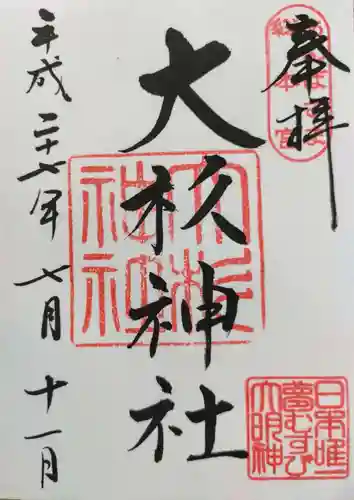 奉拝
大杉神社
平成二十七年七月十一日
大杉
神社
日本唯一
夢むすび
大明神